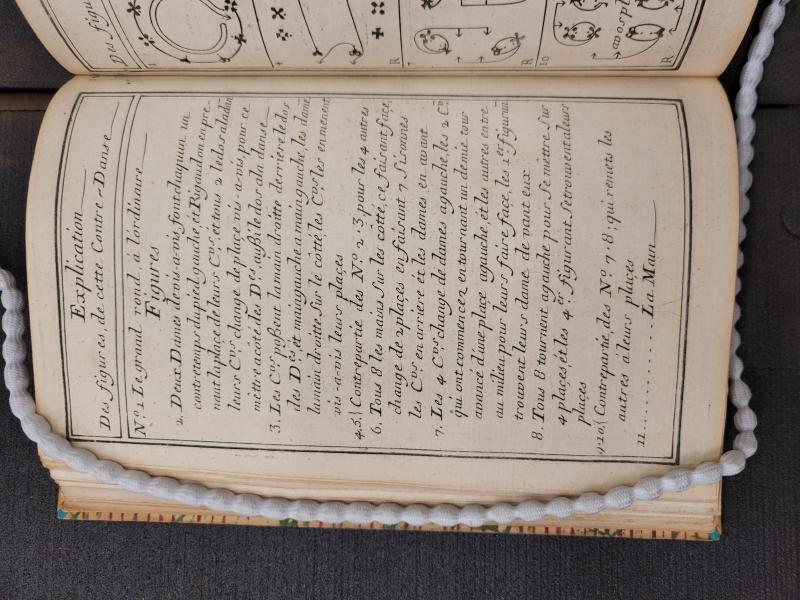 Explication
Des figures, de cette Contre-Danse
N.º 1 Le grand rond, à lordinaire
Figures
2. Deux Dames de vis-a-vis, font chaquun, un
contretemps du pied gauche, et Rigaudon en pre-
naut la place de leurs C.vrs, et tous 2 le dos a la dam
leurs C.vrs change de place, vis-a-vis, pour ce
mettre acoté des D.es, aussi le dos a la danse
3. Les C.vrs passent la main droitte derriere le dos
des D.es et main gauche a main gauche, les dames
la main droitte Sur le cotté, les C.vrs les en menent
vis-a-vis leurs places
4.5. Contrepartie des N.º 2. 3. pour les 4 autres
6. Tous 8 les mains Sur les cotté, ce faisant face,
change de 2 places en faisant 7 Sisonnes
les C.vrs en arriere et les dames en avant
7. Les 4 C.vrs change de dames a gauche, les 2 C.vrs
qui ont commencez en tournant un demie tour
avancé d'une place agauche, et les autres entre
au milieu pour leurs faire face, les 1.ers figurant
trouvent leurs dame de vant eux
8. Tous 8 tournent agauche pour Se mettre Sur
4 places et les 4 er. figurant. Se trouvent a leurs
places
9.10. Contrepartie, des N.º 7. 8; qui remets les
autres a leurs places
11 ............ La Main
Des figu
R
7
R
10
R